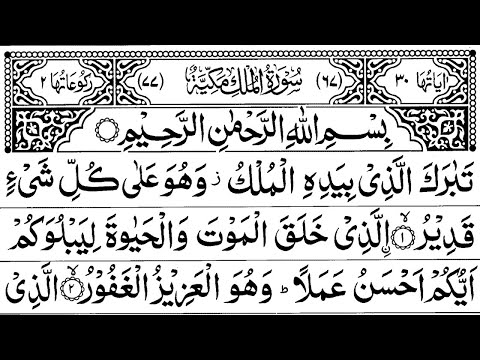 اٰیَاتُهَا ٣٠ (٦٧) سُوْرَةُ الْمُلْكِ مَكِّیَّةٌ (٧٧) رُكُوْعَاتُهَا ٢
بِسْمِ اللهِ الرَّحْمٰنِ الرَّحِیْمِ
تَبٰرَكَ الَّذِیْ بِیَدِهِ الْمُلْكُ ز وَهُوَ عَلٰی كُلِّ شَیْءٍ
قَدِیْرُ ۙ﴿١﴾ اِۨلَّذِیْ خَلَقَ الْمَوْتَ وَالْحَیٰوةَ لِیَبْلُوَكُمْ
اَیُّكُمْ اَحْسَنُ عَمَلًا ؕ وَهُوَ الْعَزِیْزُ الْغَفُوْرُ ۙ﴿٢﴾ الَّذِیْ